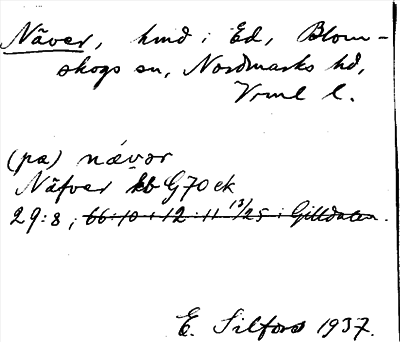 Näver, hmd i Ed, Blom-
skogs sn, Nordmarks hd,
Vrml l.
(pa) nævor
Näfver kb G70 ek
29:8, 66:10 i 12:11 13/25 i Gilldalen.
E. Silfors 1937.